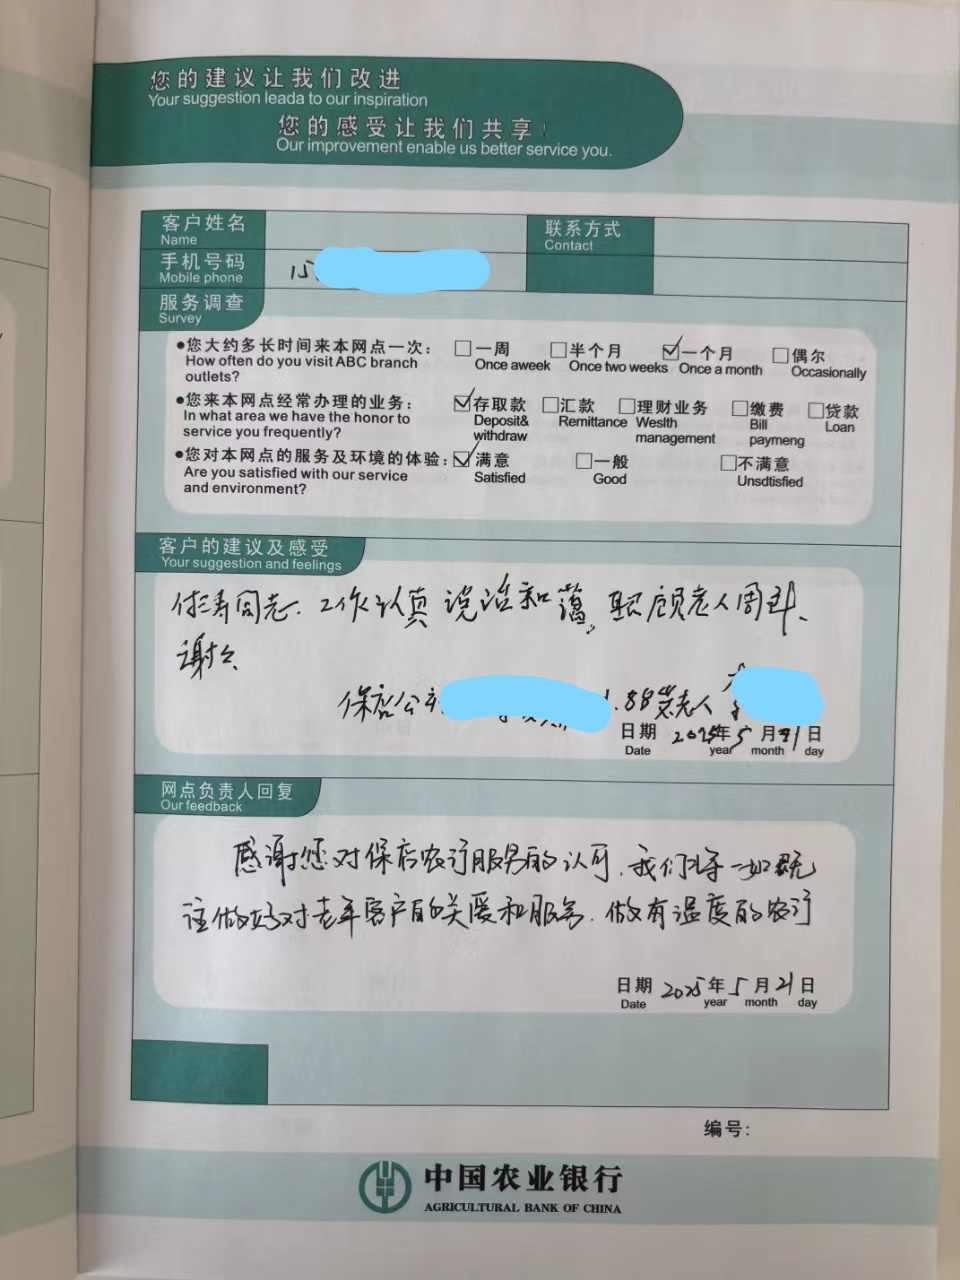 您的建议让我们改进
Your suggestion leada to our inspiration
您的感受让我们共享！
Our improvement enable us better service you.
客户姓名
Name
联系方式
Contact
手机号码
Mobile phone
15
服务调查
Survey
●您大约多长时间来本网点一次： □一周 □半个月 ☑一个月 □偶尔
How often do you visit ABC branch Once aweek Once two weeks Once a month Occasionally
outlets?
●您来本网点经常办理的业务： ☑存取款 □汇款 □理财业务 □缴费 □贷款
In what area we have the honor to Deposit& Remittance Weslth Bill Loan
service you frequently? withdraw management paymeng
●您对本网点的服务及环境的体验： ☑满意 □一般 □不满意
Are you satisfied with our service Satisfied Good Unsdtisfied
and environment?
客户的建议及感受
Your suggestion and feelings
同志、工作认真 说话和蔼，照顾老人周到、
谢谢
保店公 88岁老人
日期 2025年5月21日
Date year month day
网点负责人回复
Our feedback
感谢您对保店农行服务的认可，我们将一如既
往做好对老年客户的关爱和服务，做有温度的农行
日期 2025年5月21日
Date year month day
编号：
中国农业银行
AGRICULTURAL BANK OF CHINA